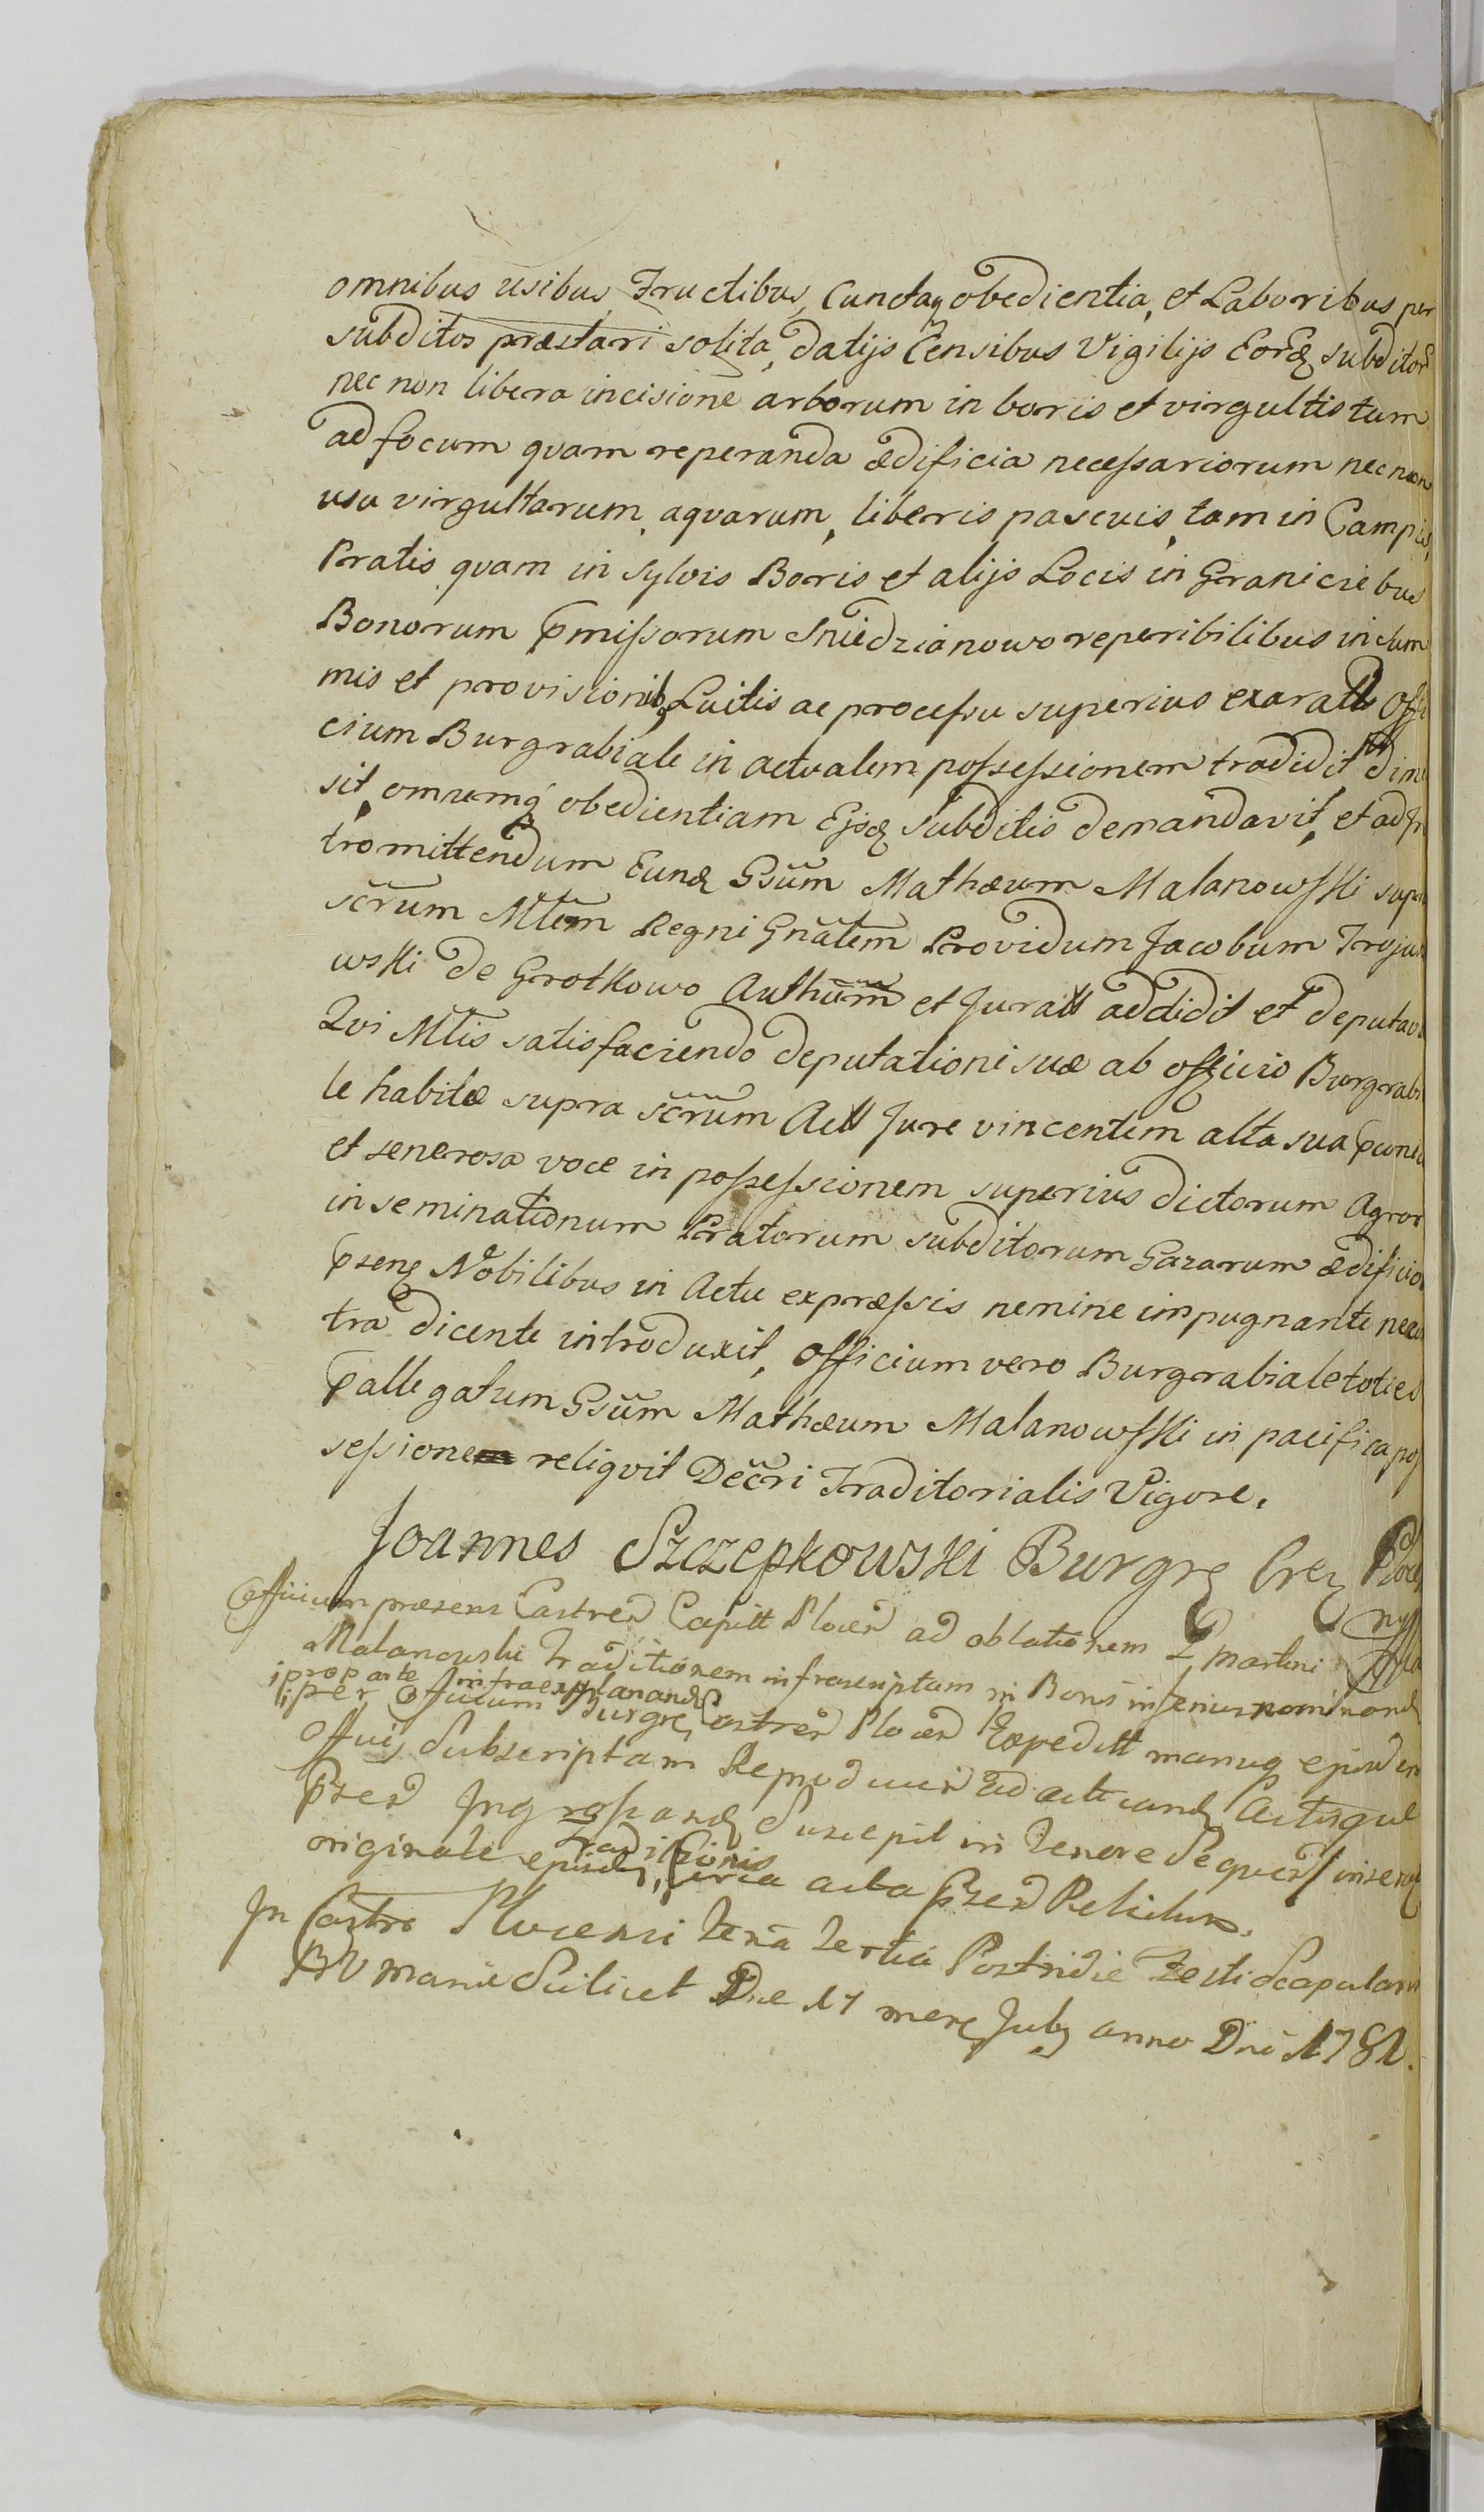 omnibus usibus, Fructibus, Cunctaq obedientia, et Laboribus per
subditos præstari solita, datijs Censibus Vigilijs Eord subditor
nec non libera incisione arborum in boris et virgultis tum
ad focum qvam reperanda ædificia necessariorum nec non
usu virgultarum, aqvarum, liberis pascuis, tam in Campis,
Pratis qvam in sylvis Boris et alijs Locis in Graniciebus
Bonorum pmissorum Sniedzianowo reperibilibus in sum
mis et provisionib Luitis ac processu superius exaratt Offi
cium Burgrabiale in actualem possessionem tradidit dimi
sit, omnemq obedientiam Ejsd subditis demandavit, et ad In
tromittendum Eund Gsum Mathæum Malanowski supra
scrum Mtem Regni Gnalem Providum Jacobum Trojan
wski de Grotkowo Authum et Juratt addidit et deputavi
Qvi Mtis satisfaciendo deputationi suæ ab officio Burgrabi
le habitæ supra scrum Actt Jure vincentem alta sua pconi
et senerosa voce in possessionem superius dictorum Agror
inseminationum Pratorum subditorum Gazarum ædificior
psenq Nobilibus in Actu expræssis nemine impugnante nec co
tra dicente introduxit, Officium vero Burgrabiale toties
pallegatum Gsum Mathæum Malanowski in pacifica pos
sessione religvit Decri Traditorialis Vigore.
Joannes Szczepkowski Burgr Crz Ploc
Officium præsens Castren Capitt Plocen ad oblationem Martini
Malanowski Traditionem infrascriptam in Bonis inferius nominand
pro parte infra explanand
per Officium Burgr Castren Plocen Expeditt manuq ejusdem
Officij Subscriptam Reproducen ad acticand Actisque
psen Ingrossand Suscepit in Tenore Sequen
traditionis
originale ejusd, Circa acta psen Relictum.
In Castro Plocensi Feria Tertia Postridie Festi Scapularis
BV Mariæ Scilicet Die 17 mens July anno Dni 1781.